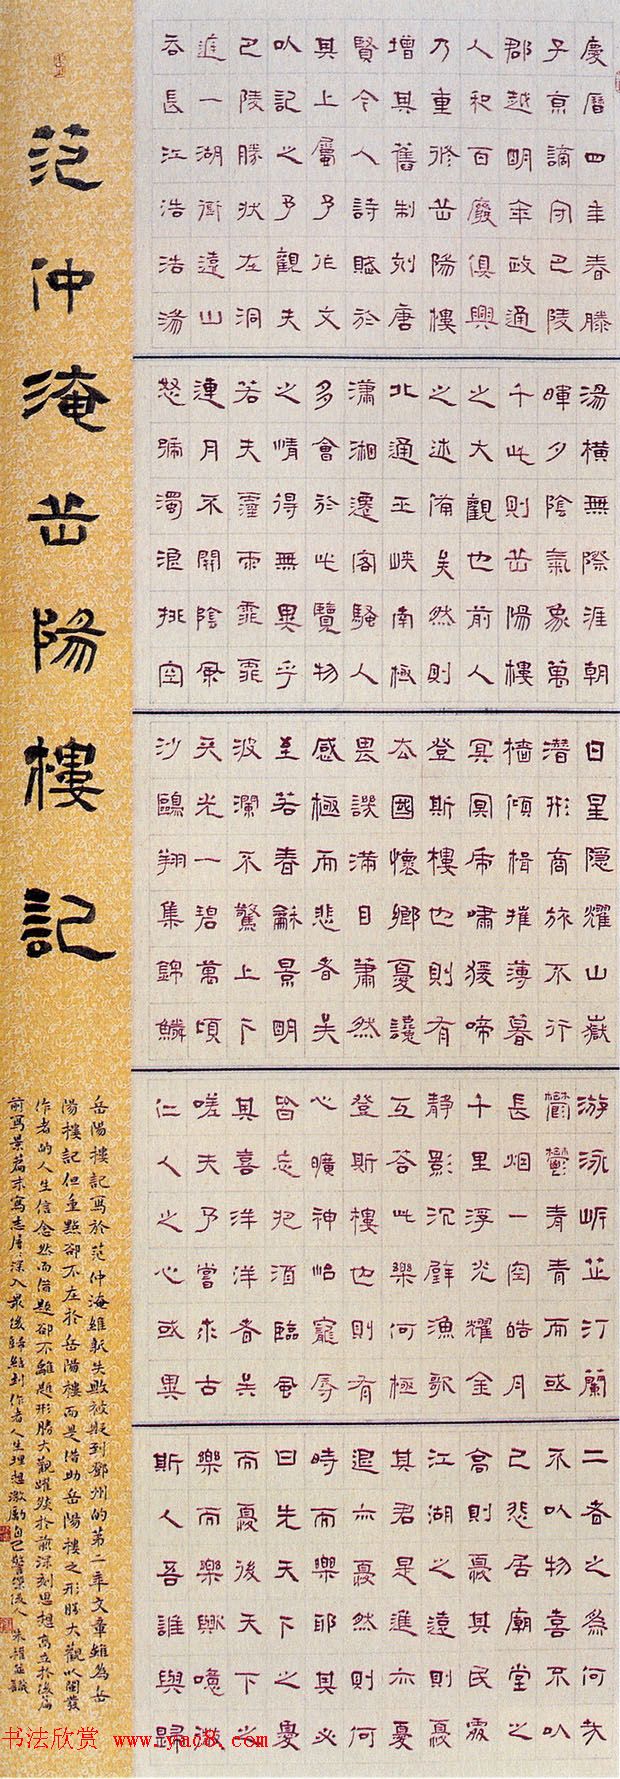 慶曆四年春滕
子京謫守巴陵
郡越明年政通
人和百廢俱興
乃重修岳陽樓
增其舊制刻唐
賢今人詩賦於
其上屬予作文
以記之予觀夫
巴陵勝狀在洞
庭一湖銜遠山
吞長江浩浩湯
湯橫無際涯朝
暉夕陰氣象萬
千此則岳陽樓
之大觀也前人
之述備矣然則
北通巫峽南極
瀟湘遷客騷人
多會於此覽物
之情得無異乎
若夫霪雨霏霏
連月不開陰風
怒號濁浪排空
日星隱耀山嶽
潛形商旅不行
檣傾楫摧薄暮
冥冥虎嘯猿啼
登斯樓也則有
去國懷鄉憂讒
畏譏滿目蕭然
感極而悲者矣
至若春龢景明
波瀾不驚上下
天光一碧萬頃
沙鷗翔集錦鱗
游泳岸芷汀蘭
鬱鬱青青而或
長烟一空皓月
千里浮光耀金
靜影沉璧漁歌
互答此樂何極
登斯樓也則有
心曠神怡寵辱
皆忘把酒臨風
其喜洋洋者矣
嗟夫予嘗求古
仁人之心或異
二者之為何哉
不以物喜不以
己悲居廟堂之
高則憂其民處
江湖之遠則憂
其君是進亦憂
退亦憂然則何
時而樂耶其必
曰先天下之憂
而憂後天下之
樂而樂歟噫微
斯人吾誰與歸
范仲淹岳陽樓記
岳陽樓記寫於范仲淹維新失敗被貶到鄧州的第二年文章雖為岳
陽樓記但重點卻不在於岳陽樓而是借助岳陽樓之形勝大觀以闡發
作者的人生信念然而借題卻不離題形勝大觀躍然於前深刻思想高立於後篇
前寫景篇末寫志層層深入最後歸結到作者人生理想激勵自己警策後人 朱
书法欣赏 www.yac8.com